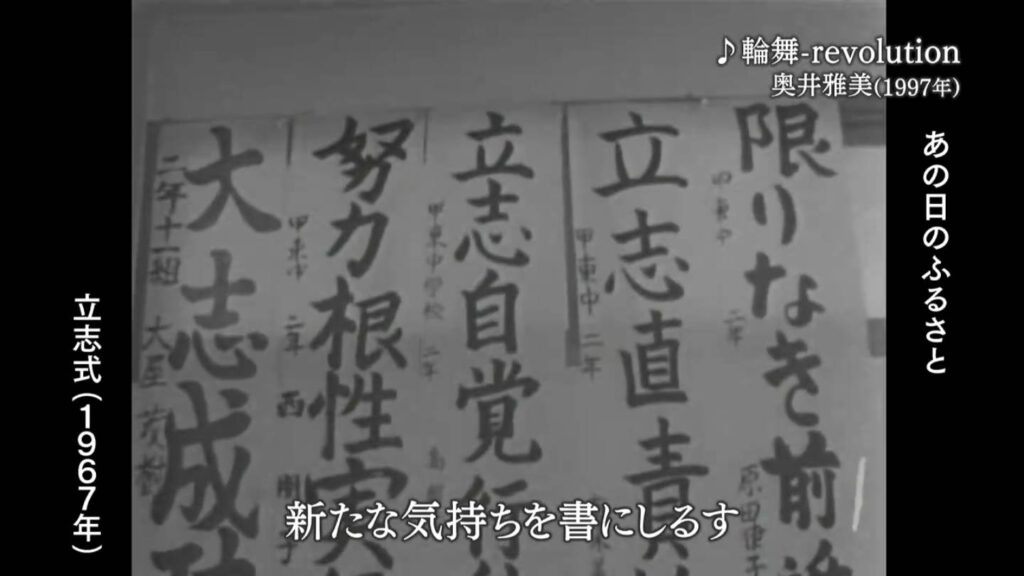 ♪輪舞-revolution
奥井雅美(1997年)
あの日のふるさと
限りなき前
甲東中 二年 原田律子
立志直責
甲東中 二年
立志自覚行
甲東中学校 二年
努力根性実
甲東中 二年 西
大志成功
二年十一組 大屋
新たな気持ちを書にしるす
立志式(1967年)